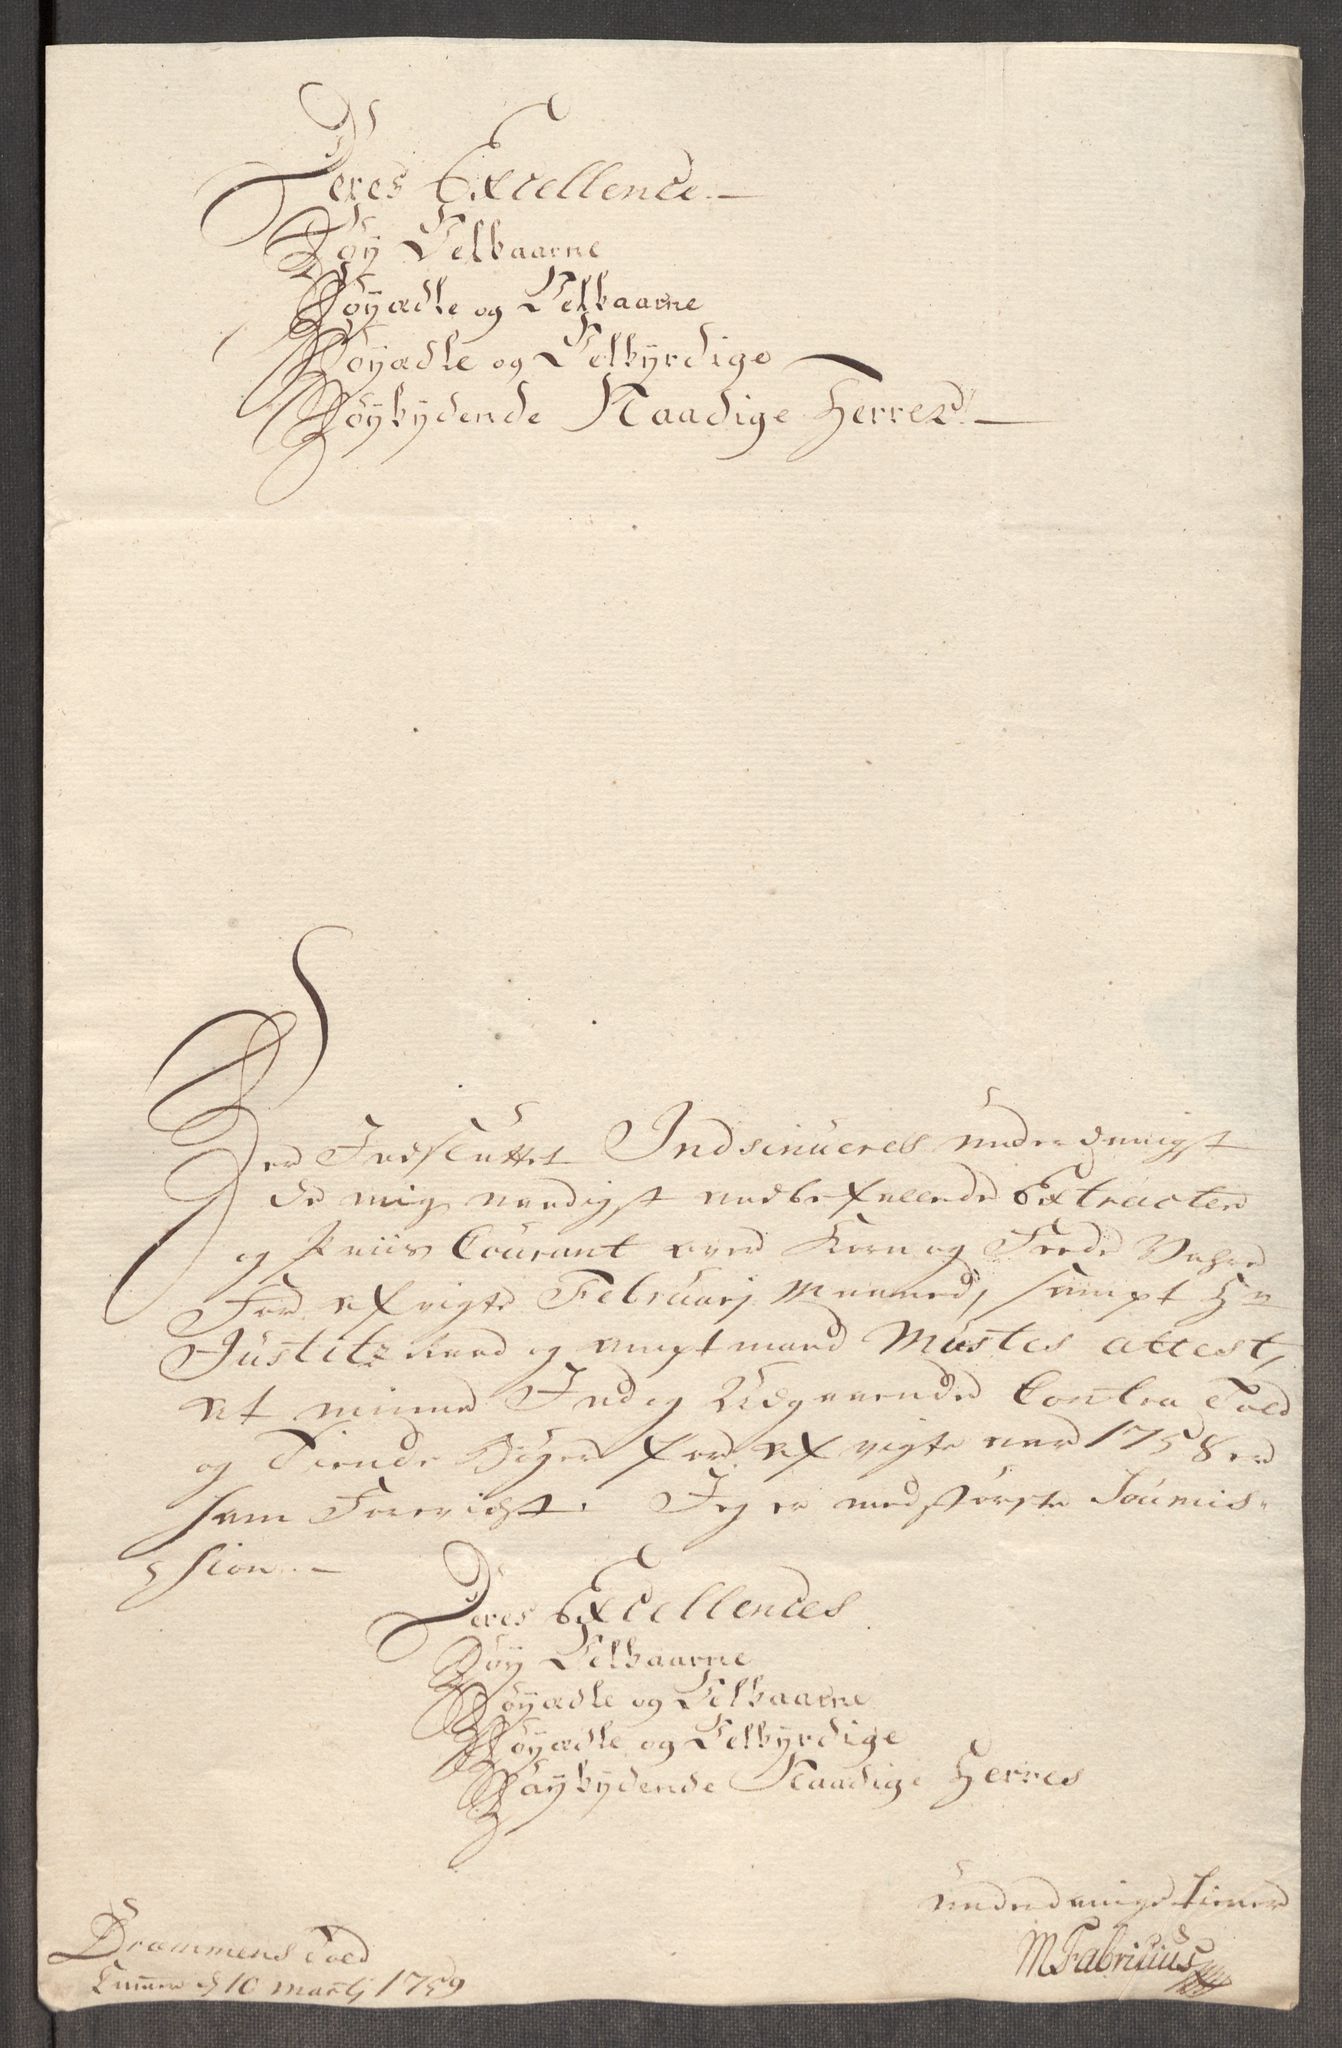 Deres Excellence.
Høy Velbaarne
Høyædle og Velbaarne
Høyædle og Velbyrdige
Høybydende Naadige Herrer.
Her Indsluttet Indsinueres underdanigst
de mig naadigst anbefallede Extracter
og Priis Courant over Korn og Feede Vahre
For afvigte Februarj Maaned, sampt Hr
Justitz Raad og Amptmand Mustes attest,
at minne Ind og Udgaaende Contra Told
og Tiende Bøger for afvigte aar 1758 er
som Forerigst. Jeg er med største Soumis-
sion.
Deres Excellences
Høy Velbaarne
Høyædle og Velbaarne
Høyædle og Velbyrdige
Høybydende Naadige Herres
underdanige tiener
M Fabricius
Drammens Told
Cammer d 10 Martj 1759